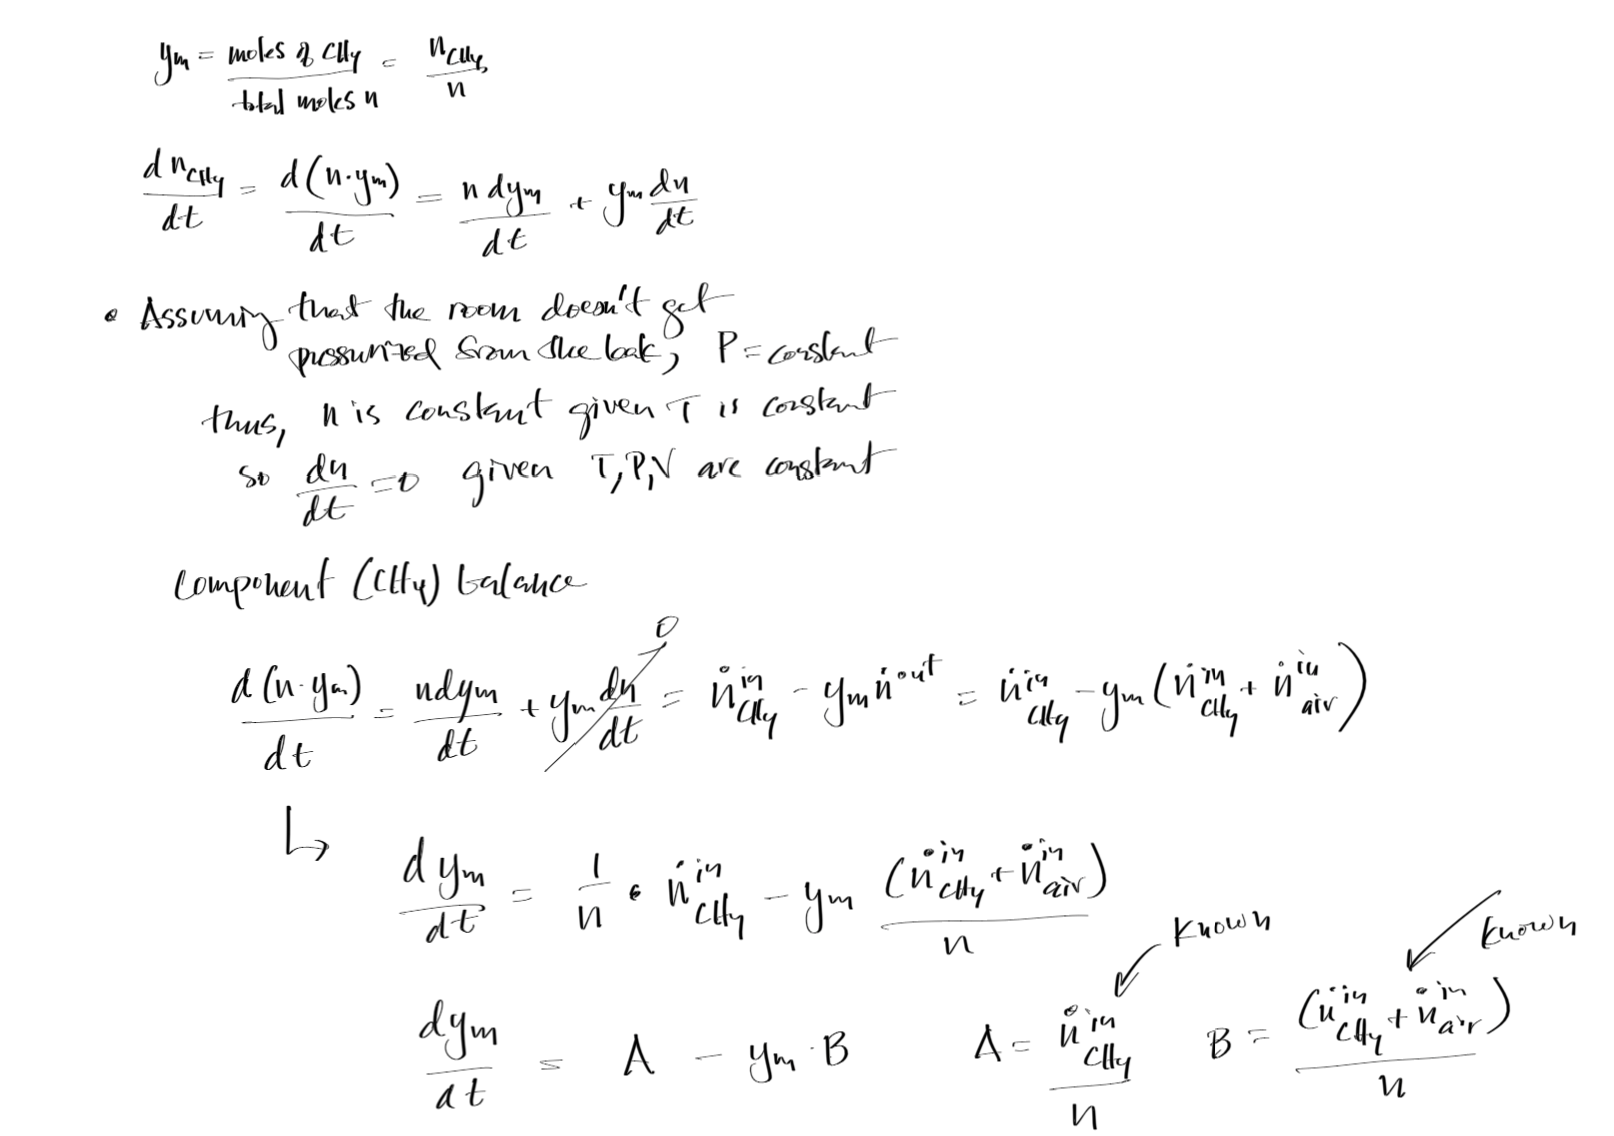 y_m = moles of CH4 / total moles n = n_CH4 / n
d n_CH4 / dt = d(n·y_m) / dt = n dy_m / dt + y_m dn / dt
• Assuming that the room doesn't get
pressurized from the leak, P = constant
thus, n is constant given T is constant
so dn / dt = 0 given T,P,V are constant
Component (CH4) balance
d(n·y_m) / dt = n dy_m / dt + y_m dn / dt (→ 0) = ṅ^in_CH4 - y_m ṅ^out = ṅ^in_CH4 - y_m (ṅ^in_CH4 + ṅ^in_air)
↳ dy_m / dt = 1 / n • ṅ^in_CH4 - y_m (ṅ^in_CH4 + ṅ^in_air) / n
Known Known
dy_m / dt = A - y_m · B A = ṅ^in_CH4 / n B = (ṅ^in_CH4 + ṅ^in_air) / n